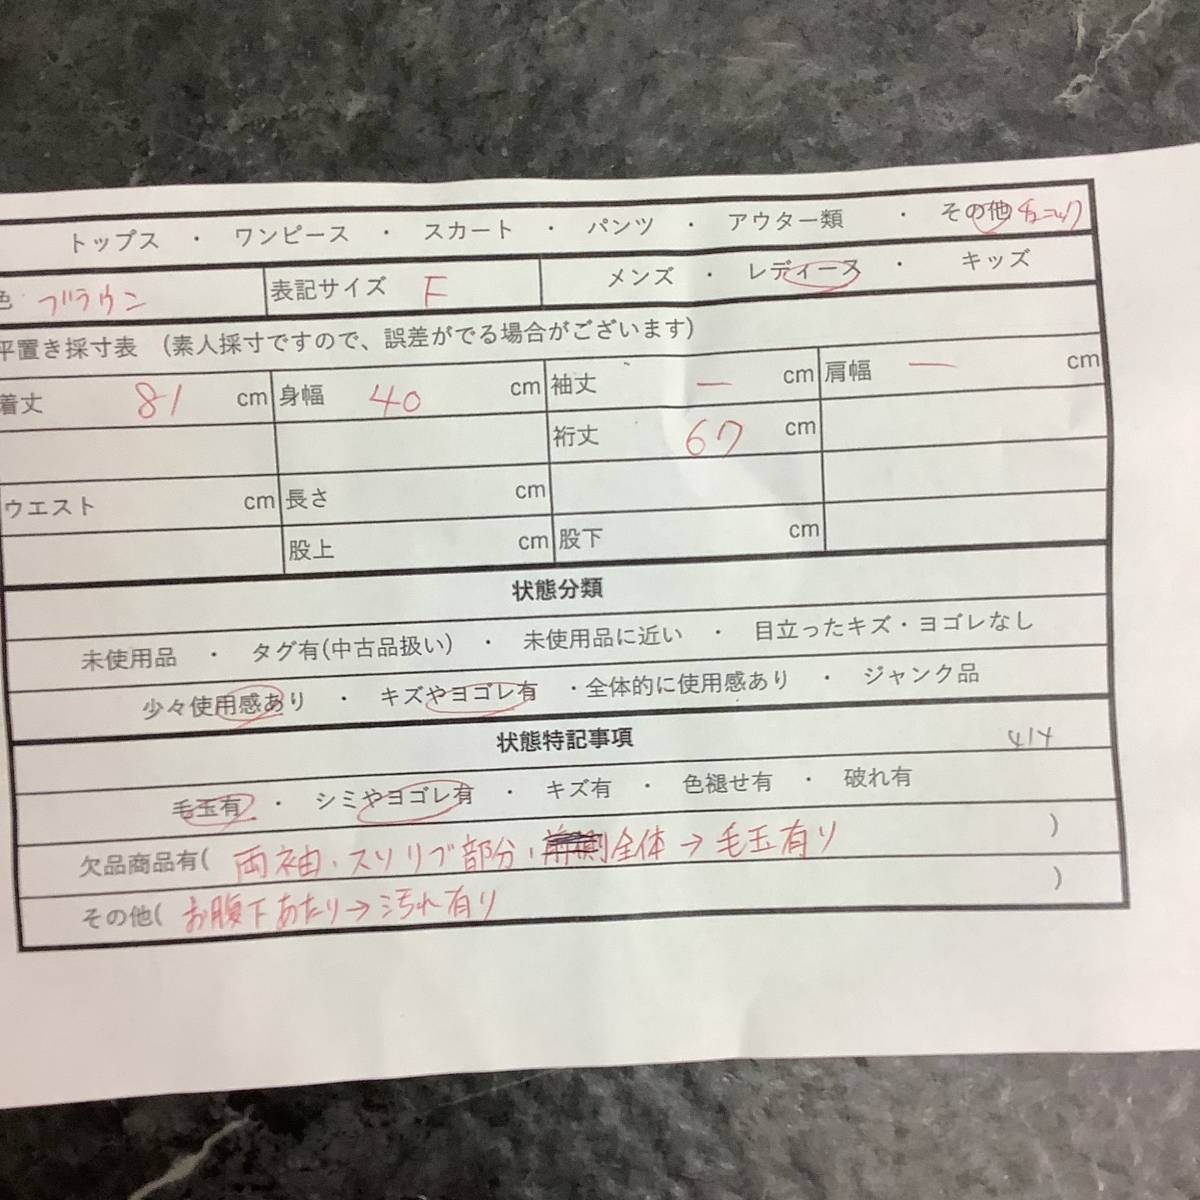 トップス ・ ワンピース ・ スカート ・ パンツ ・ アウター類 ・ その他 チュニック
色 ブラウン 表記サイズ F メンズ ・ レディース ・ キッズ
平置き採寸表 (素人採寸ですので、誤差がでる場合がございます)
着丈 81 cm 身幅 40 cm 袖丈 ー cm 肩幅 ー cm
裄丈 67 cm
ウエスト cm 長さ cm
股上 cm 股下 cm
状態分類
未使用品 ・ タグ有(中古品扱い) ・ 未使用品に近い ・ 目立ったキズ・ヨゴレなし
少々使用感あり ・ キズやヨゴレ有 ・全体的に使用感あり ・ ジャンク品
状態特記事項
毛玉有 ・ シミやヨゴレ有 ・ キズ有 ・ 色褪せ有 ・ 破れ有
欠品商品有( 両袖・スソリブ部分・全体→毛玉有り )
その他( お腹下あたり→汚れ有り )